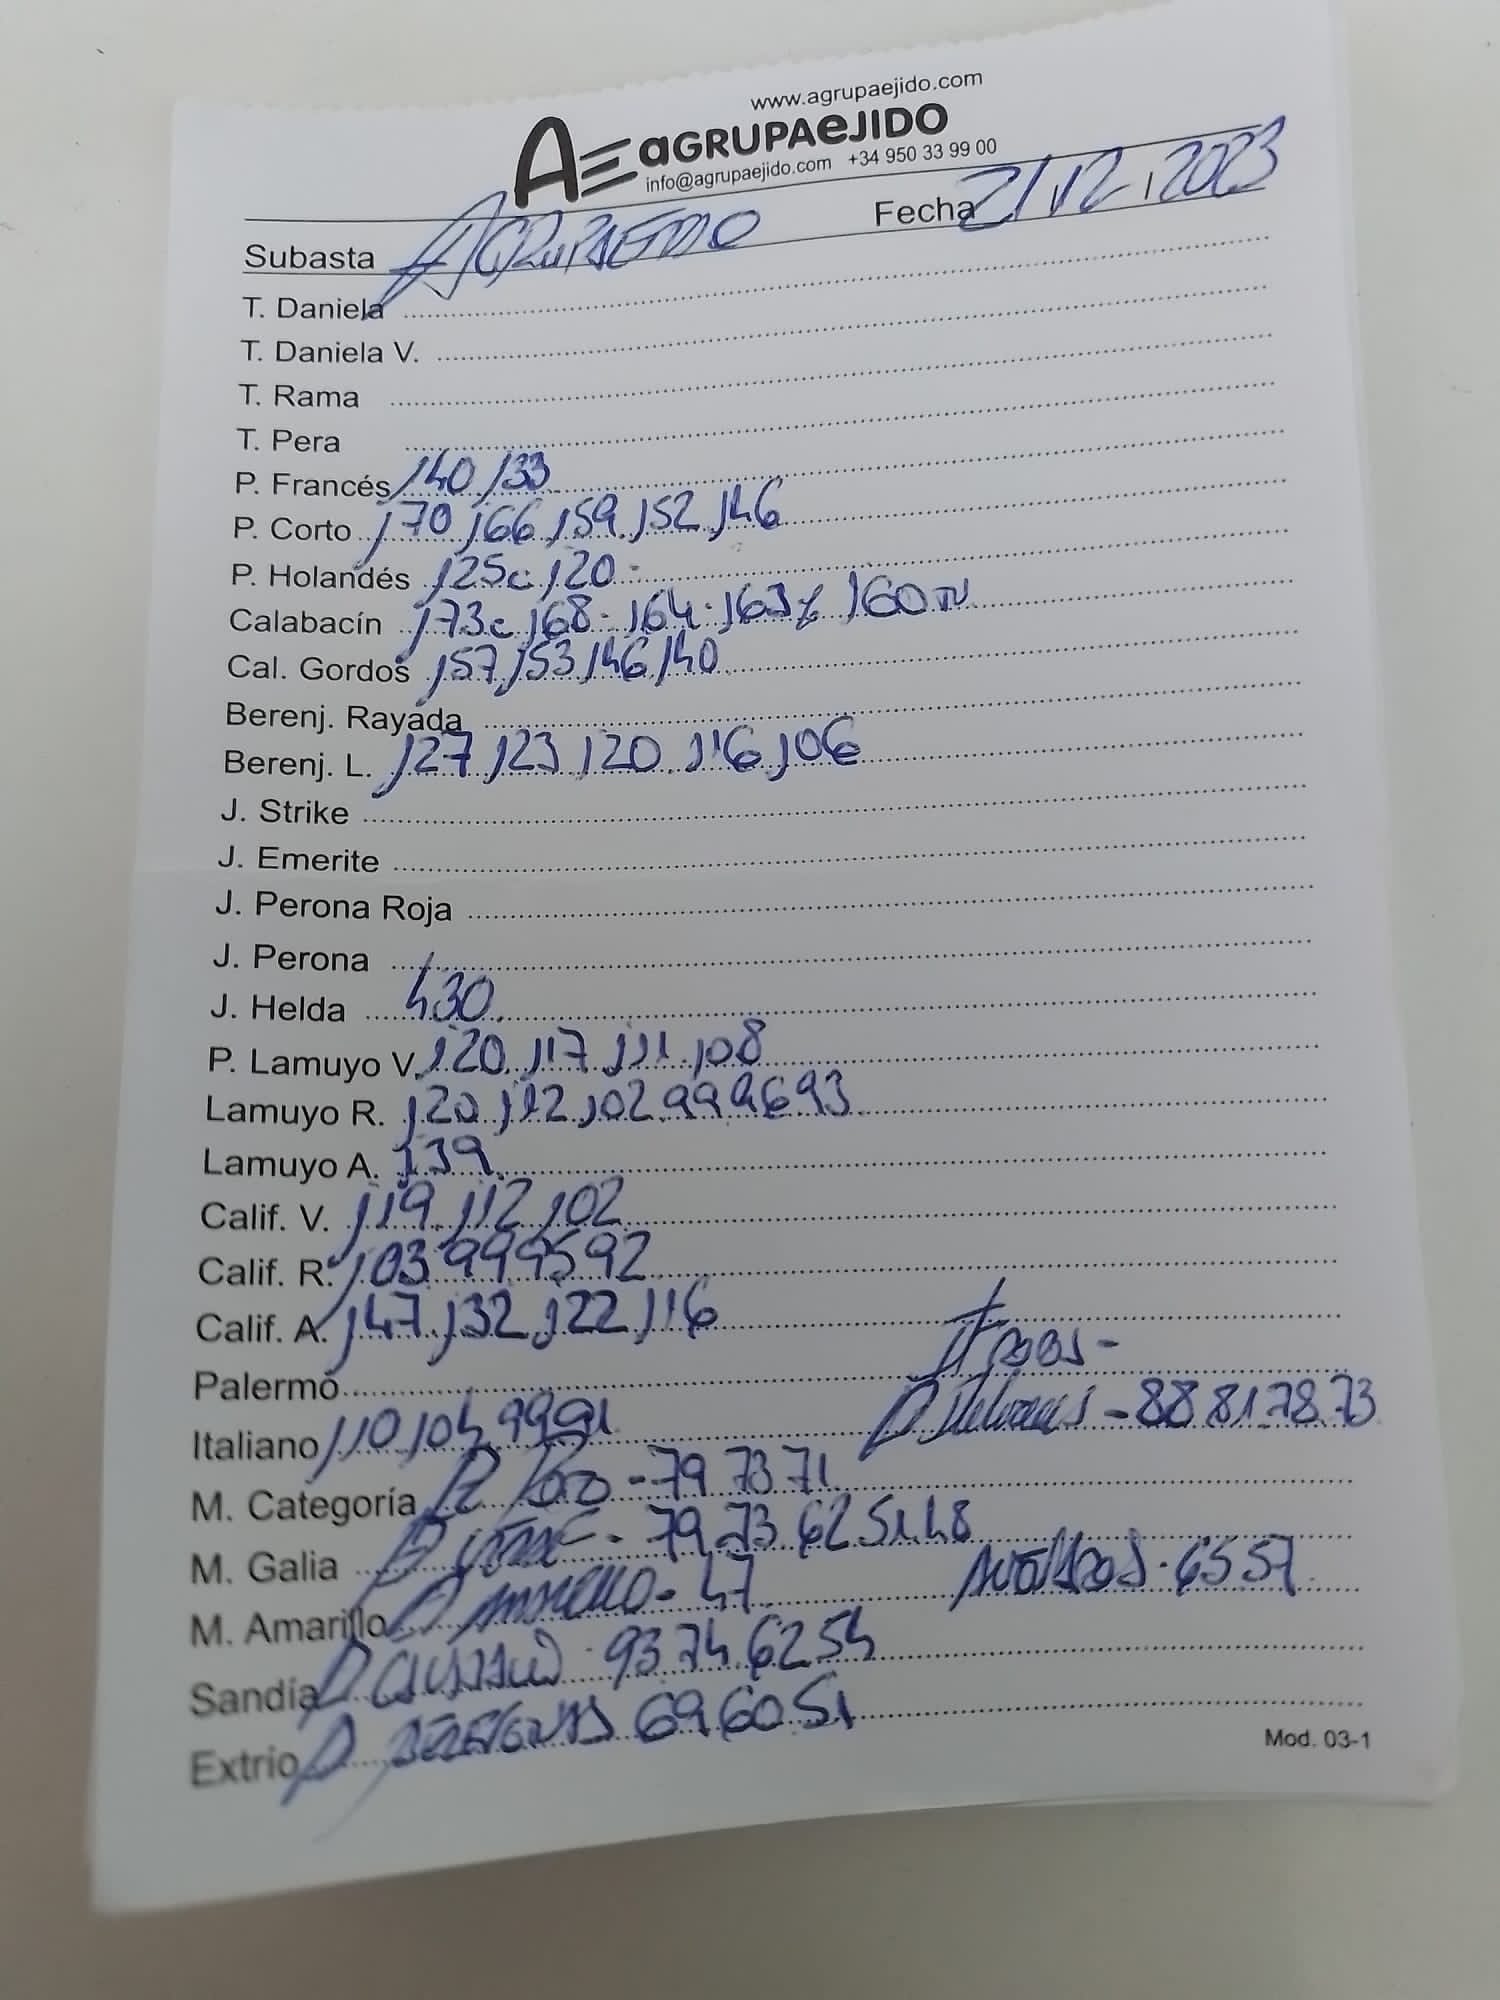 www.agrupaejido.com
AE aGRUPAeJIDO
info@agrupaejido.com +34 950 33 99 00
Subasta AGRUPAEJIDO Fecha 21/12/2023
T. Daniela
T. Daniela V.
T. Rama
T. Pera
P. Francés 140 133
P. Corto 170 166 159 152 146
P. Holandés 125c 120
Calabacín 173c 168 164 163 160
Cal. Gordos 157 153 146 140
Berenj. Rayada
Berenj. L. 127 123 120 116 106
J. Strike
J. Emerite
J. Perona Roja
J. Perona
J. Helda 430
P. Lamuyo V. 120 117 111 108
Lamuyo R. 120 112 102 99 96 93
Lamuyo A. 139
Calif. V. 119 112 102
Calif. R. 103 99 95 92
Calif. A. 147 132 122 116
Palermo
Italiano 110 104 99 91 - 88 81 78 73
M. Categoría - 79 73 71
M. Galia - 79 73 62 51 48
M. Amarillo - 47 - 65 57
Sandía 93 74 62 54
Extrio 69 60 51
Mod. 03-1